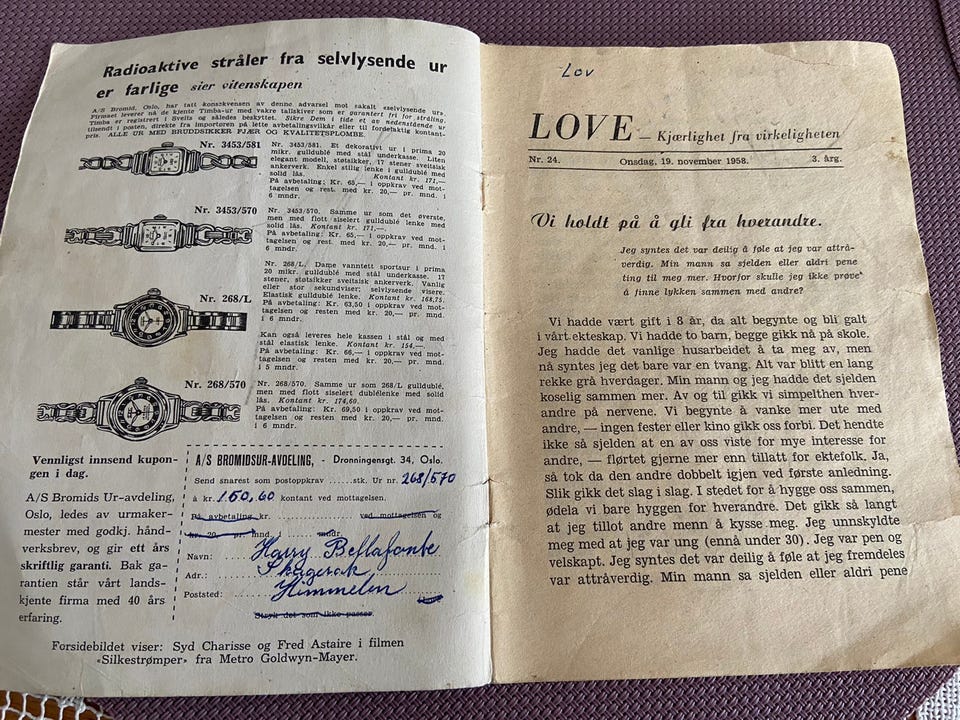 Radioaktive stråler fra selvlysende ur
er farlige sier vitenskapen
A/S Bromid, Oslo, har tatt konsekvensen av denne advarsel mot såkalt «selvlysende ur».
Firmaet leverer nå de kjente Timba-ur med vakre tallskiver som er garantert fri for stråling.
Timba er registrert i Sveits og således beskyttet. Sikre Dem i tide et av nedenstående ur
tilsendt i posten, direkte fra importøren på lette avbetalingsvilkår eller til fordelaktig kontant-
pris. ALLE UR MED BRUDDSIKKER FJÆR OG KVALITETSPLOMBE.
Nr. 3453/581
Nr. 3453/581. Et dekorativt ur i prima 20
mikr. gulldublé med stål underkasse. Liten
elegant modell, støtsikker, 17 stener sveitsisk
ankerverk. Enkel stilig lenke i gulldublé med
solid lås. Kontant kr. 171,—
På avbetaling: Kr. 65,— i oppkrav ved mot-
tagelsen og rest. med kr. 20,— pr. mnd. i
6 mndr.
Nr. 3453/570
Nr. 3453/570. Samme ur som det øverste,
men med flott siselert gulldublé lenke med
solid lås. Kontant kr. 171,—.
På avbetaling: Kr. 65,— i oppkrav ved mot-
tagelsen og resten med kr. 20,— pr. mnd. i
6 mndr.
Nr. 268/L
Nr. 268/L. Dame vanntett sportsur i prima
20 mikr. gulldublé med stål underkasse. 17
stener, støtsikker sveitsisk ankerverk. Vanlig
eller stor sekundviser; selvlysende visere.
Elastisk gulldublé lenke. Kontant kr. 168,75.
På avbetaling: Kr. 63,50 i oppkrav ved mot-
tagelsen og resten med kr. 20,— pr. mnd.
i 6 mndr.
Kan også leveres hele kassen i stål og med
stål elastisk lenke. Kontant kr. 154,—.
På avbetaling: Kr. 66,— i oppkrav ved mot-
tagelsen og resten med kr. 20,— pr. mnd.
i 6 mndr.
Nr. 268/570
Nr. 268/570. Samme ur som 268/L gulldublé,
men med flott siselert dublélenke med solid
lås. Kontant kr. 174,60.
På avbetaling: Kr. 69,50 i oppkrav ved mot-
tagelsen og resten med kr. 20,— pr. mnd.
i 6 mndr.
Vennligst innsend kupon-
gen i dag.
A/S Bromids Ur-avdeling,
Oslo, ledes av urmaker-
mester med godkj. hånd-
verksbrev, og gir ett års
skriftlig garanti. Bak ga-
rantien står vårt lands-
kjente firma med 40 års
erfaring.
A/S BROMIDSUR-AVDELING, - Dronningensgt. 34, Oslo.
Send snarest som postoppkrav ......stk. Ur nr. 268/570
à kr. 150,60 kontant ved mottagelsen.
På avbetaling kr. ved mottagelsen og
kr. 20,— pr. mnd. i mndr.
Navn: Harry Bellafonte
Adr.: Skagerak
Poststed: Himmelen
Stryk det som ikke passer
Forsidebildet viser: Syd Charisse og Fred Astaire i filmen
«Silkestrømper» fra Metro Goldwyn-Mayer.
Lov
LOVE — Kjærlighet fra virkeligheten
Nr. 24. Onsdag, 19. november 1958. 3. årg.
Vi holdt på å gli fra hverandre.
Jeg syntes det var deilig å føle at jeg var attrå-
verdig. Min mann sa sjelden eller aldri pene
ting til meg mer. Hvorfor skulle jeg ikke prøve
å finne lykken sammen med andre?
Vi hadde vært gift i 8 år, da alt begynte og bli galt
i vårt ekteskap. Vi hadde to barn, begge gikk nå på skole.
Jeg hadde det vanlige husarbeidet å ta meg av, men
nå syntes jeg det bare var en tvang. Alt var blitt en lang
rekke grå hverdager. Min mann og jeg hadde det sjelden
koselig sammen mer. Av og til gikk vi simpelthen hver-
andre på nervene. Vi begynte å vanke mer ute med
andre, — ingen fester eller kino gikk oss forbi. Det hendte
ikke så sjelden at en av oss viste for mye interesse for
andre, — flørtet gjerne mer enn tillatt for ektefolk. Ja,
så tok da den andre dobbelt igjen ved første anledning.
Slik gikk det slag i slag. I stedet for å hygge oss sammen,
ødela vi bare hyggen for hverandre. Det gikk så langt
at jeg tillot andre menn å kysse meg. Jeg unnskyldte
meg med at jeg var ung (ennå under 30). Jeg var pen og
velskapt. Jeg syntes det var deilig å føle at jeg fremdeles
var attråverdig. Min mann sa sjelden eller aldri pene